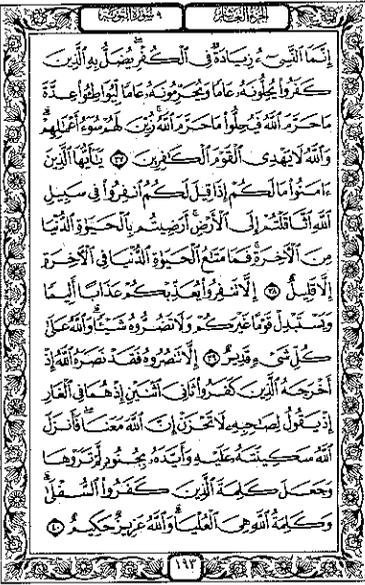 الجزء العاشر ٩ سورة التوبة
إِنَّمَا ٱلنَّسِىٓءُ زِيَادَةٌ فِى ٱلْكُفْرِ يُضَلُّ بِهِ ٱلَّذِينَ
كَفَرُوا۟ يُحِلُّونَهُۥ عَامًا وَيُحَرِّمُونَهُۥ عَامًا لِّيُوَاطِـُٔوا۟ عِدَّةَ
مَا حَرَّمَ ٱللَّهُ فَيُحِلُّوا۟ مَا حَرَّمَ ٱللَّهُ زُيِّنَ لَهُمْ سُوٓءُ أَعْمَـٰلِهِمْ
وَٱللَّهُ لَا يَهْدِى ٱلْقَوْمَ ٱلْكَـٰفِرِينَ ٣٧ يَـٰٓأَيُّهَا ٱلَّذِينَ
ءَامَنُوا۟ مَا لَكُمْ إِذَا قِيلَ لَكُمُ ٱنفِرُوا۟ فِى سَبِيلِ
ٱللَّهِ ٱثَّاقَلْتُمْ إِلَى ٱلْأَرْضِ أَرَضِيتُم بِٱلْحَيَوٰةِ ٱلدُّنْيَا
مِنَ ٱلْـَٔاخِرَةِ فَمَا مَتَـٰعُ ٱلْحَيَوٰةِ ٱلدُّنْيَا فِى ٱلْـَٔاخِرَةِ
إِلَّا قَلِيلٌ ٣٨ إِلَّا تَنفِرُوا۟ يُعَذِّبْكُمْ عَذَابًا أَلِيمًا
وَيَسْتَبْدِلْ قَوْمًا غَيْرَكُمْ وَلَا تَضُرُّوهُ شَيْـًٔا وَٱللَّهُ عَلَىٰ
كُلِّ شَىْءٍ قَدِيرٌ ٣٩ إِلَّا تَنصُرُوهُ فَقَدْ نَصَرَهُ ٱللَّهُ إِذْ
أَخْرَجَهُ ٱلَّذِينَ كَفَرُوا۟ ثَانِىَ ٱثْنَيْنِ إِذْ هُمَا فِى ٱلْغَارِ
إِذْ يَقُولُ لِصَـٰحِبِهِۦ لَا تَحْزَنْ إِنَّ ٱللَّهَ مَعَنَا فَأَنزَلَ
ٱللَّهُ سَكِينَتَهُۥ عَلَيْهِ وَأَيَّدَهُۥ بِجُنُودٍ لَّمْ تَرَوْهَا
وَجَعَلَ كَلِمَةَ ٱلَّذِينَ كَفَرُوا۟ ٱلسُّفْلَىٰ
وَكَلِمَةُ ٱللَّهِ هِىَ ٱلْعُلْيَا وَٱللَّهُ عَزِيزٌ حَكِيمٌ ٤٠
١٩٣